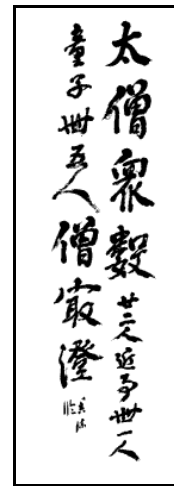 太僧衆數廿二人近事卌一人
童子卌五人僧最澄